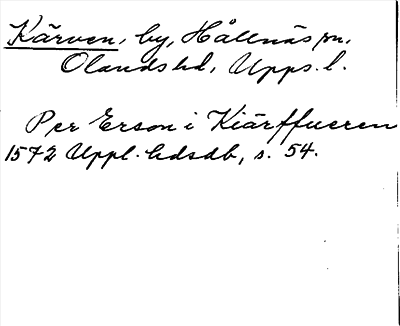 Kärven, by, Hållnäs sn,
Olands hd, Upps. l.
Per Erson i Kiärffueren
1572 Uppl. hdsdb, s. 54.